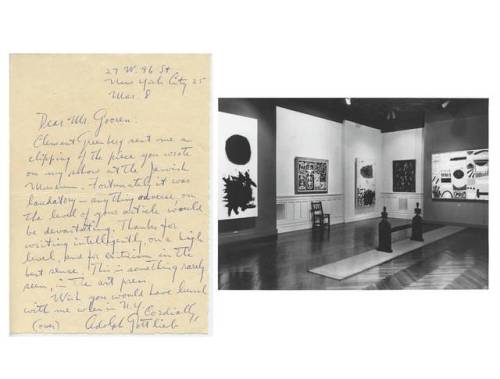 27 W. 96 St
New York City 25
Mar. 8
Dear Mr. Gooren:
Clement Greenberg sent me a
clipping of the piece you wrote
on my show at the Jewish
Museum. Fortunately, it was
laudatory — anything adverse, on
the level of your article would
be devastating. Thanks for
writing intelligently, on a high
level, and for criticism in the
best sense. This is something rarely
seen, in the art press.
Wish you would have lunch
with me when in N.Y.
Cordially
(over) Adolph Gottlieb